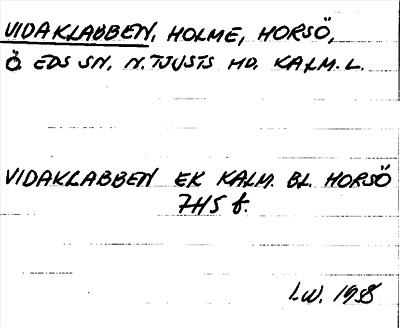 VIDAKLABBEN, HOLME, HORSÖ,
Ö EDS SN, N. TJUSTS HD. KALM. L.
VIDAKLABBEN EK KALM. BL. HORSÖ
7H5 f.
I.W. 1958